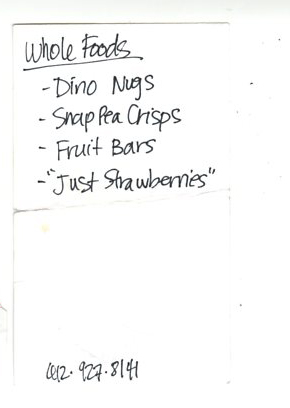 Whole Foods
- Dino Nugs
- Snap Pea Crisps
- Fruit Bars
- "Just Strawberries"
612. 927. 8141